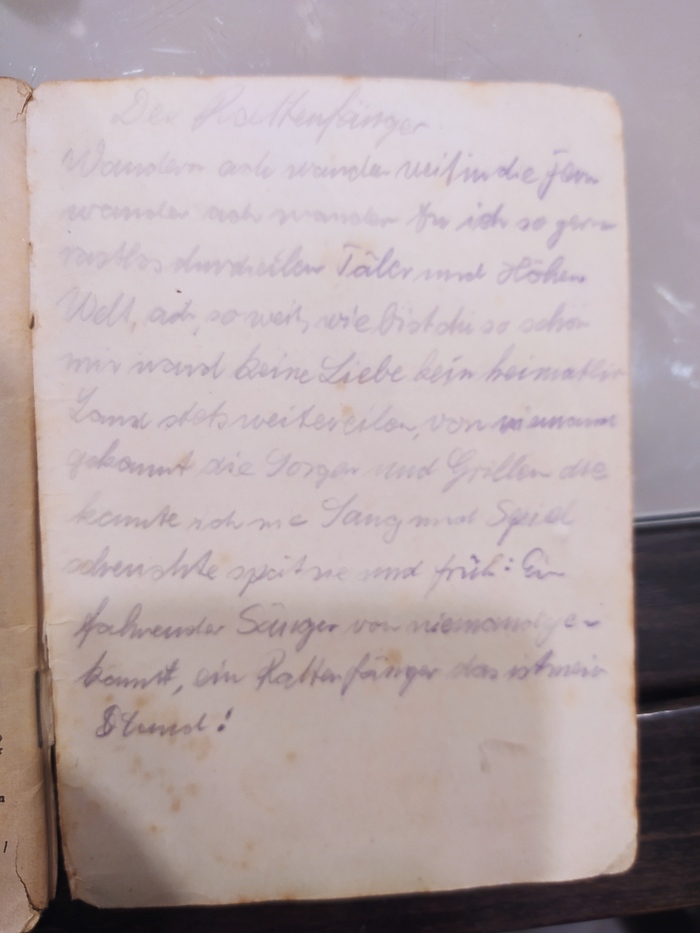 Der Rattenfänger
Wandern ach wandern weit in die Fern
wandern ach wandern tu ich so gern
rastlos durcheilen Täler und Höhen
Welt, ach, so weit, wie bist du so schön
mir ward keine Liebe kein heimatlich
Land stets weitereilen, von niemand
gekannt die Sorgen und Grillen die
kannte ich nie Sang und Spiel
scheuchte spät sie und früh: Ein
fahrender Sänger von niemand ge-
kannt, ein Rattenfänger das ist mein
Stand!